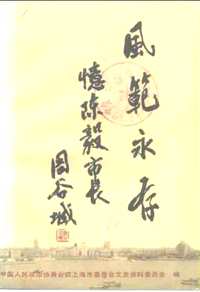 風範永存
憶陳毅市長
周谷城
中国人民政治协商会议上海市委员会文史资料委员会 编